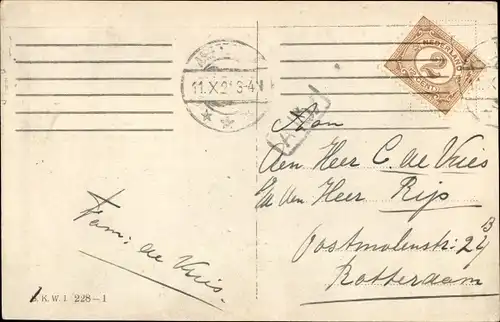 11.X 2* 3-4N
NEDERLAND
2
CENT
Aan
den Heer C. de Vries
p/a den Heer Rijp
Postmolenstr: 24 B
Rotterdam
Fam: de Vries.
S.K.W.I 228-1